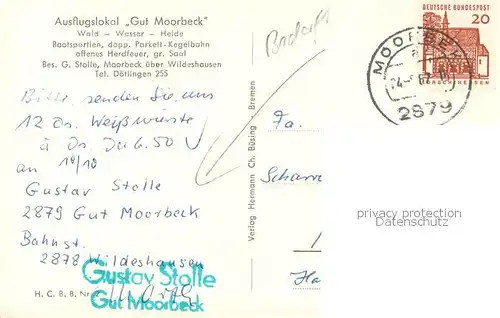 Ausflugslokal „Gut Moorbeck"
Wald – Wasser – Heide
Bootspartien, dopp. Parkett-Kegelbahn
offenes Herdfeuer, gr. Saal
Bes. G. Stolle, Moorbeck über Wildeshausen
Tel. Dötlingen 255
Bitte, senden Sie uns
12 Ds. Weißwürste
à Ds. 6.50
an 10/10
Gustav Stolle
2879 Gut Moorbeck
Bahnst.
2878 Wildeshausen
Gustav Stolle
Gut Moorbeck
H. C. B. B. Nr.
Verlag Hermann Ch. Büsing Bremen
DEUTSCHE BUNDESPOST
20
LORSCH HESSEN
MOORBEK
2879
Fa.
privacy protection
watermark